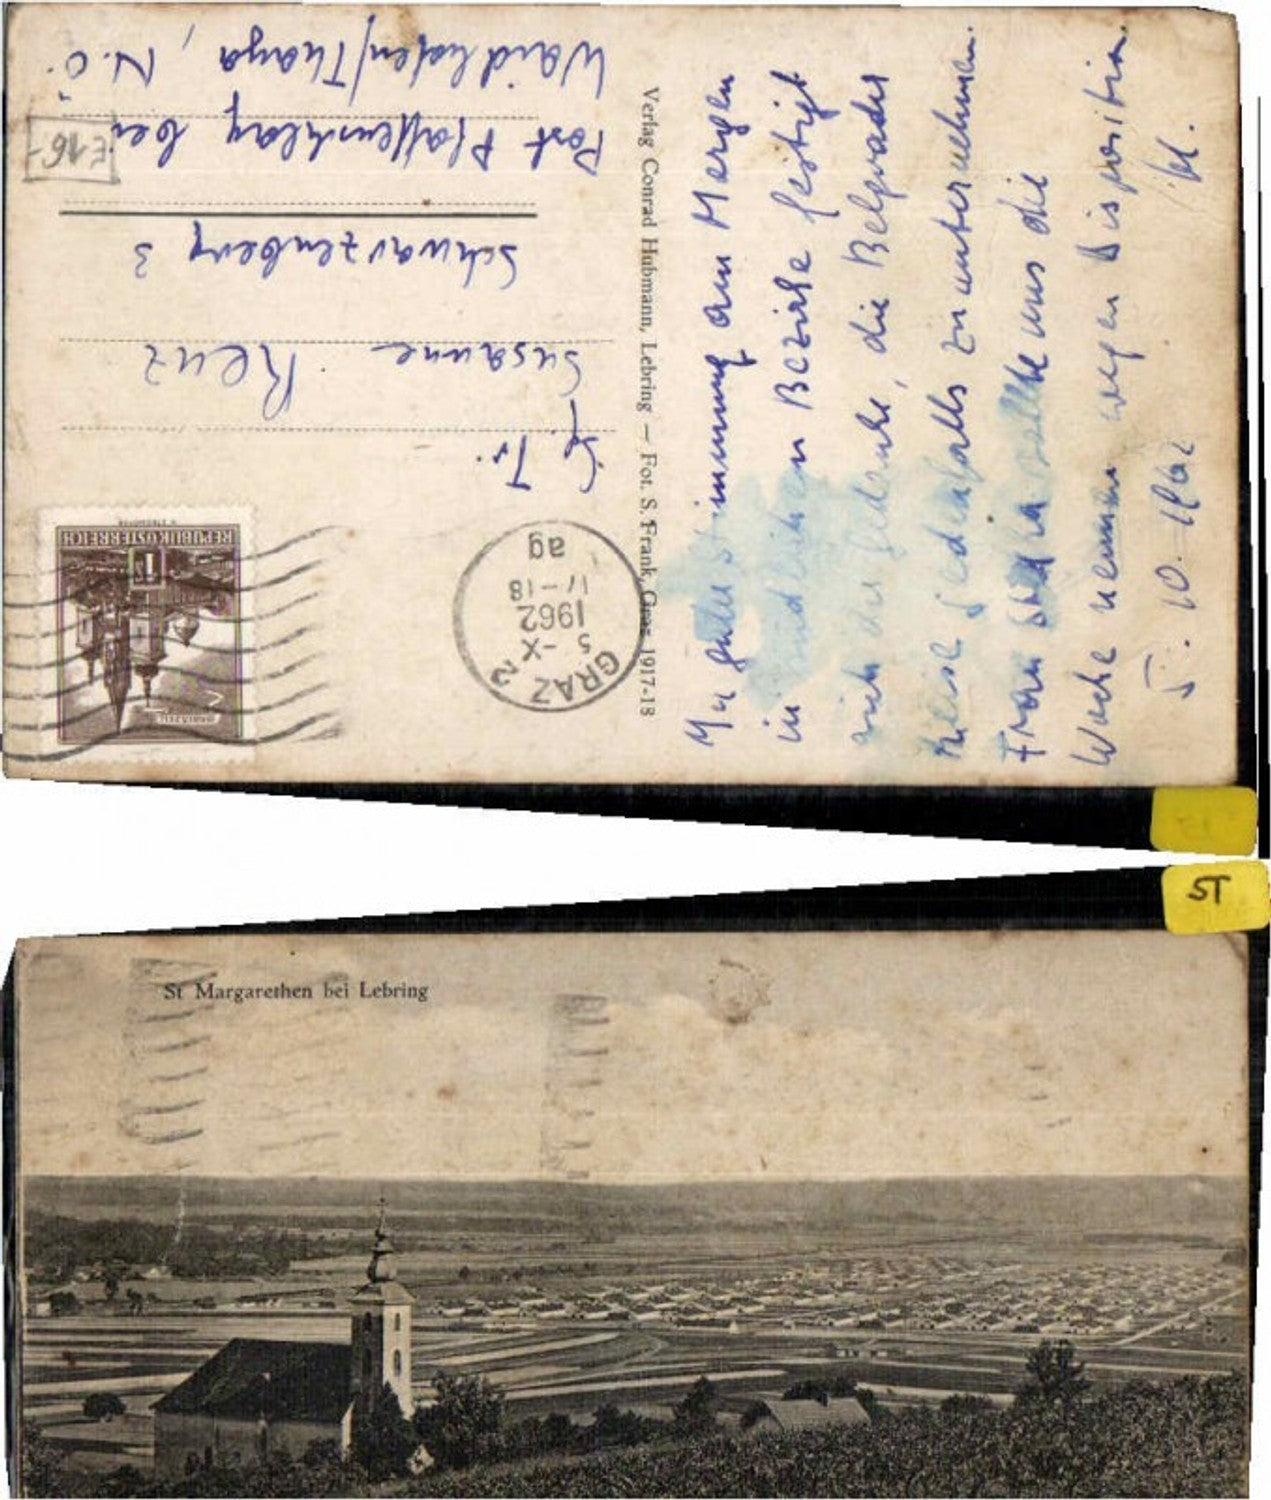 In guter Stimmung am Morgen
in südlichen Bezirke festigt
sich der Gedanke, die Belgrader
Reise jedenfalls zu unternehmen.
Frau sollte uns die
Woche nennen wegen Disposition.
5. 10. 1962
Verlag Conrad Hubmann, Lebring — Fot. S. Frank, Graz 1917-18
REPUBLIK ÖSTERREICH
1
MARIAZELL
GRAZ 2
5 -X
1962
17-18
ag
Frl.
Susanne Renz
Schwarzenberg 3
Post Pfaffenschlag bei
Waidhofen/Thaya, N.Ö.
E16-
ST
St Margarethen bei Lebring